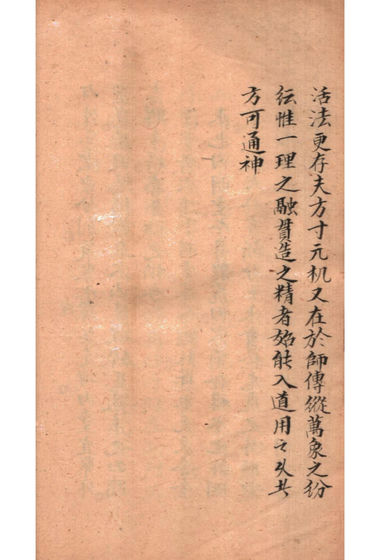 活法更存夫方寸元机又在於師傳縱萬象之紛
纭惟一理之融貫造之精者始能入道用之久共
方可通神